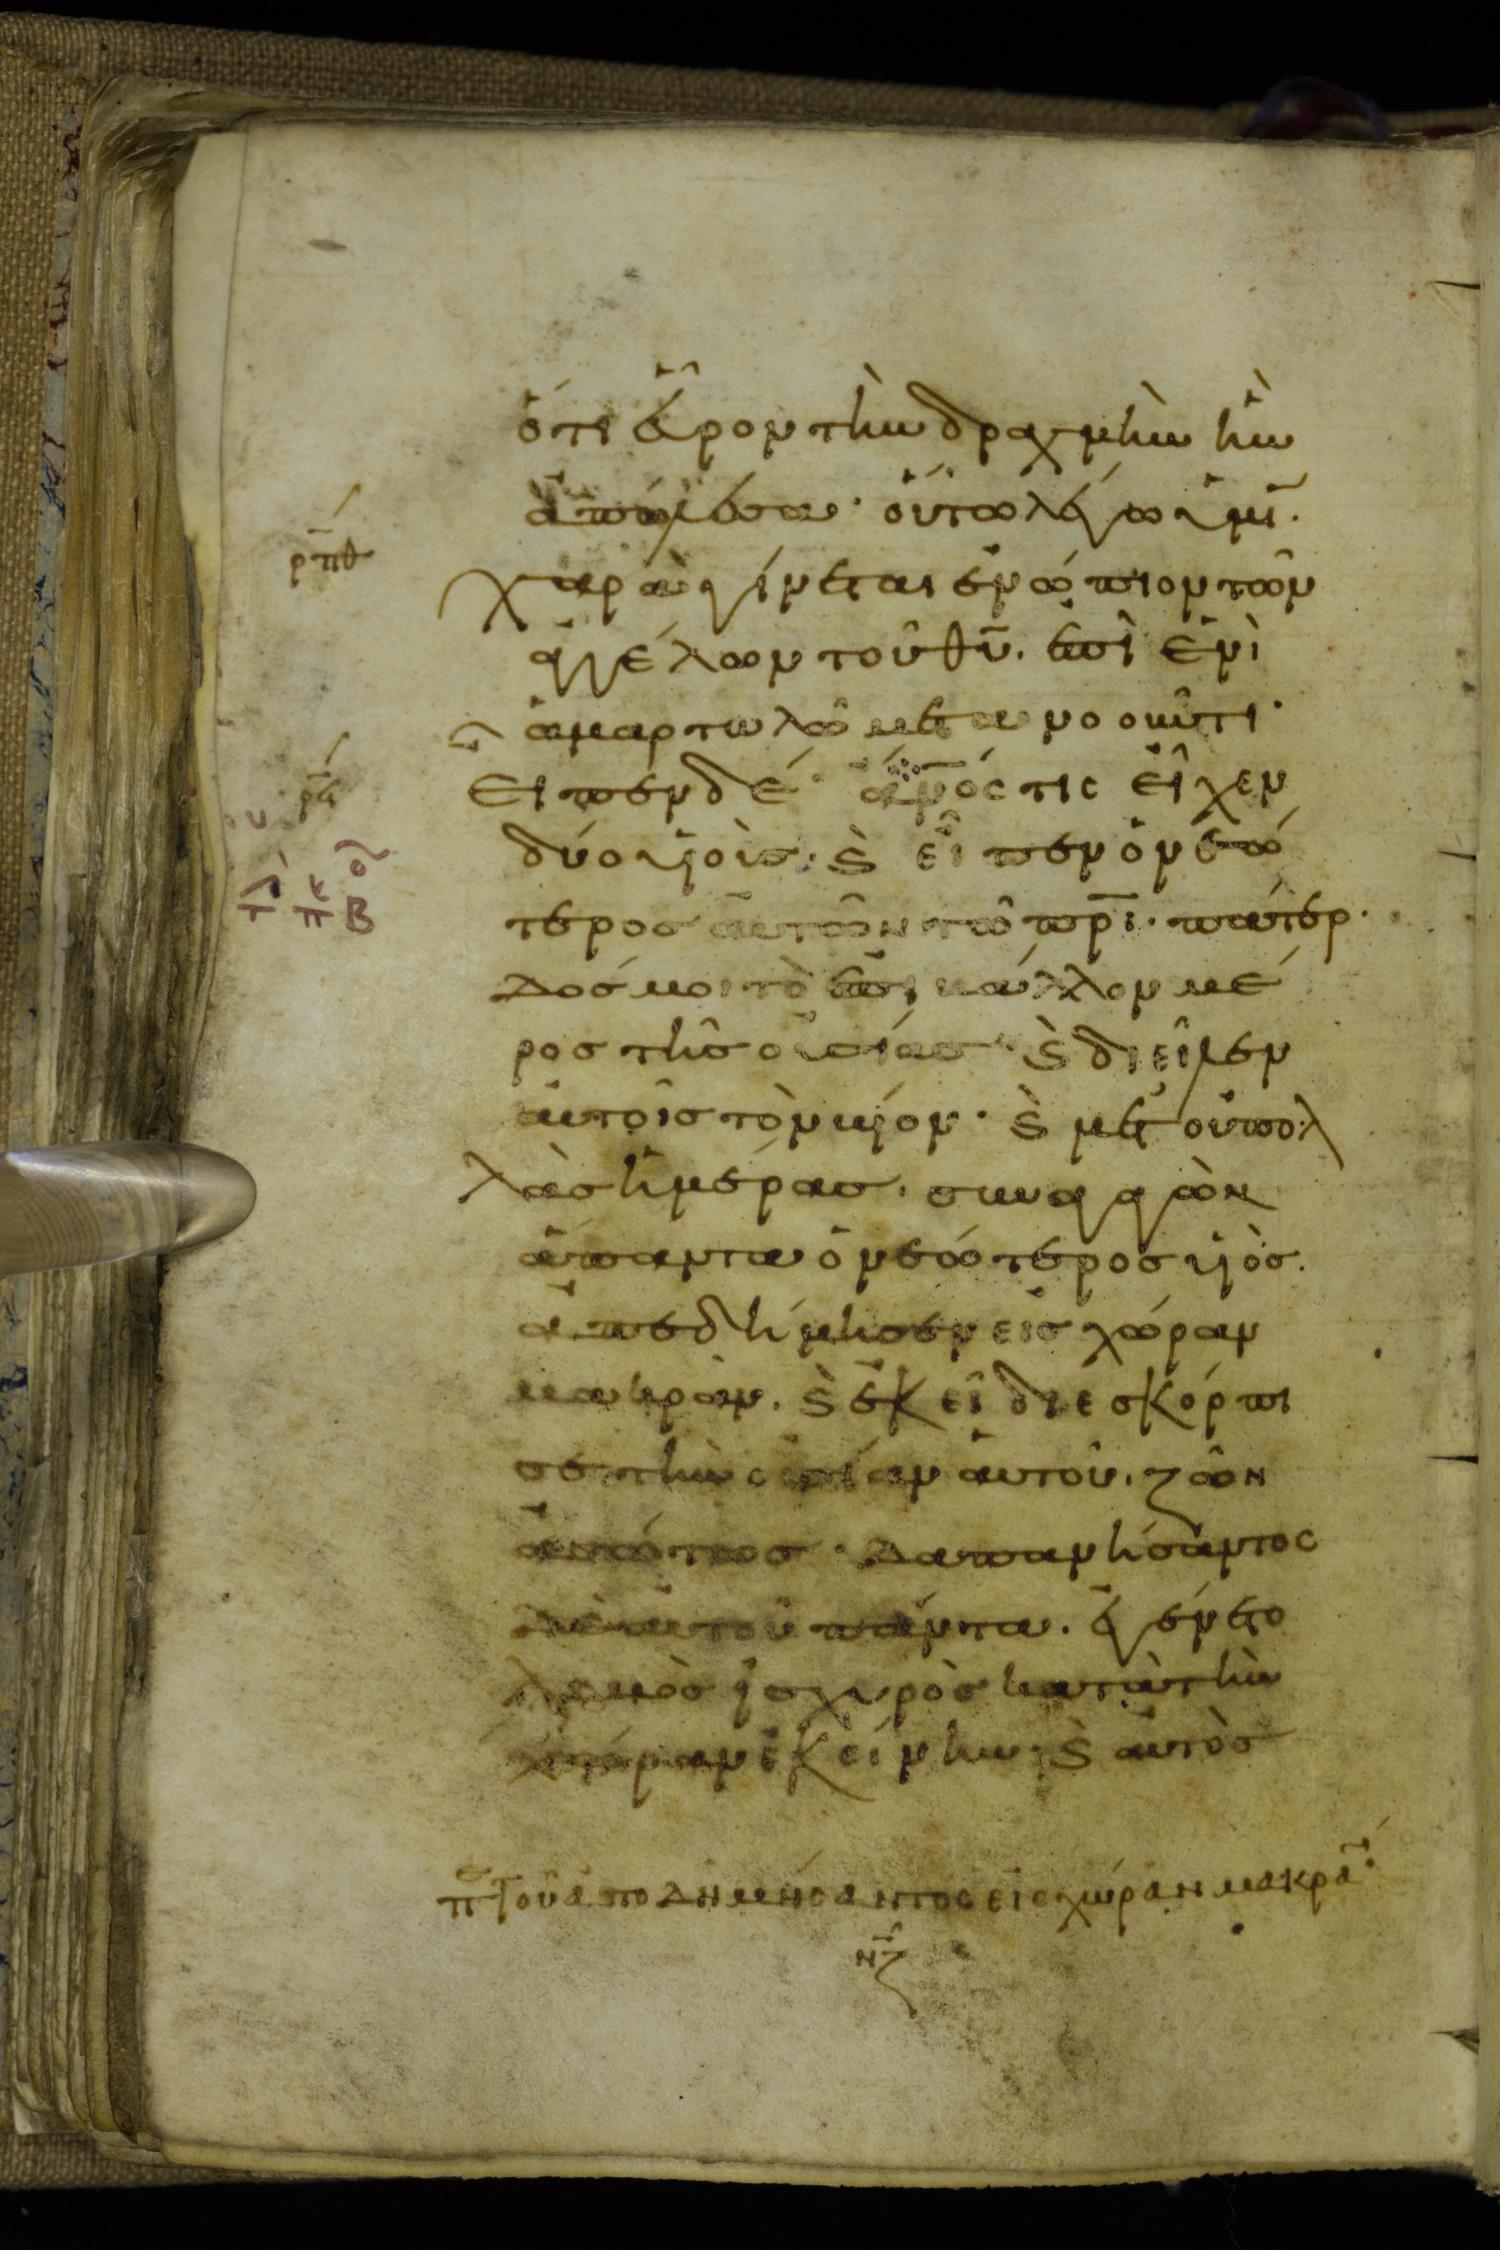 ὅτι εὗρον τὴν δραχμὴν ἣν
ἀπώλεσα· οὕτω λέγω ὑμῖ.
ρπθ
χαρὰ γίνεται ἐνώπιον τῶν
ἀγγέλων τοῦ θυ. ἐπὶ ἑνὶ
ἁμαρτωλῶ μετανοοῦντι·
ρϟ
Εἶπεν δέ· ἀνός τις εἶχεν
δύο υἱούς· ϗ εἶπεν ὁ νεώ
τερος αὐτῶν τῶ πρι· πάτερ·
δός μοι τὸ ἐπιβάλλον μέ
ρος τῆς οὐσίας· ϗ διεῖλεν
αὐτοῖς τὸν βίον· ϗ μετ οὐ πολ
λὰς ἡμέρας. συναγαγὼν
ἅπαντα ὁ νεώτερος υἱὸς.
ἀπεδήμησεν εἰς χώραν
μακράν. ϗ ἐκεῖ διεσκόρπι
σε τὴν οὐσίαν αὐτοῦ. ζῶν
ἀσώτως· δαπανήσαντος
δὲ αὐτοῦ πάντα. ἐγένετο
λιμὸς ἰσχυρὸς κατὰ τὴν
χώραν ἐκείνην· ϗ αὐτὸς
π τοῦ ἀποδημήσαντος εἰς χώραν μακρά·
νζ